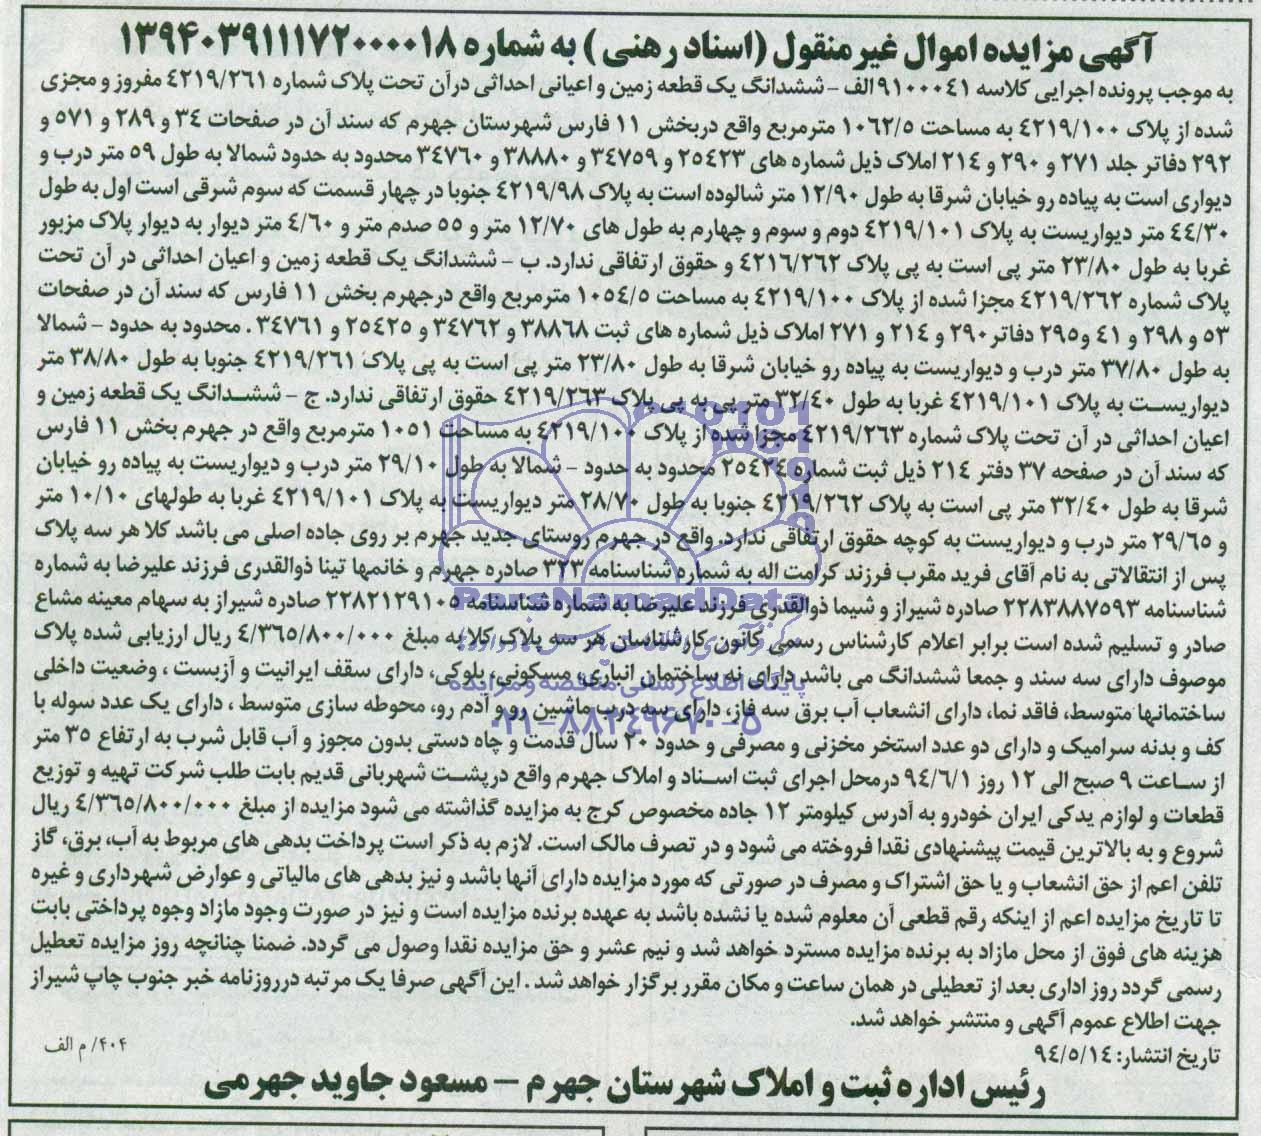 آگهی مزایده اموال غیر منقول (اسناد رهنی) به شماره ۱۳۹۴۰۳۹۱۱۱۷۲۰۰۰۰۱۸
به موجب پرونده اجرایی کلاسه ۹۱۰۰۰۴۱ الف - ششدانگ یک قطعه زمین و اعیانی احداثی درآن تحت پلاک شماره ۴۲۱۹/۲۶۱ مفروز و مجزی
شده از پلاک ۴۲۱۹/۱۰۰ به مساحت ۱۰۶۲/۵ مترمربع واقع دربخش ۱۱ فارس شهرستان جهرم که سند آن در صفحات ۳۴ و ۲۸۹ و ۵۷۱ و
۲۹۲ دفاتر جلد ۲۷۱ و ۲۹۰ و ۲۱۴ املاک ذیل شماره های ۲۵۴۲۳ و ۳۴۷۵۹ و ۳۸۸۸۰ و ۳۴۷۶۰ محدود به حدود شمالا به طول ۵۹ متر درب و
دیواری است به پیاده رو خیابان شرقا به طول ۱۲/۹۰ متر شالوده است به پلاک ۴۲۱۹/۹۸ جنوبا در چهار قسمت که سوم شرقی است اول به طول
۴۴/۳۰ متر دیواریست به پلاک ۴۲۱۹/۱۰۱ دوم و سوم و چهارم به طول های ۱۲/۷۰ متر و ۵۵ صدم متر و ۴/۶۰ متر دیوار به دیوار پلاک مزبور
غربا به طول ۲۳/۸۰ متر پی است به پی پلاک ۴۲۱۶/۲۶۲ و حقوق ارتفاقی ندارد. ب - ششدانگ یک قطعه زمین و اعیان احداثی در آن تحت
پلاک شماره ۴۲۱۹/۲۶۲ مجزا شده از پلاک ۴۲۱۹/۱۰۰ به مساحت ۱۰۵۴/۵ مترمربع واقع درجهرم بخش ۱۱ فارس که سند آن در صفحات
۵۳ و ۲۹۸ و ۴۱ و۲۹۵ دفاتر۲۹۰ و ۲۱۴ و ۲۷۱ املاک ذیل شماره های ثبت ۳۸۸۶۸ و ۳۴۷۶۲ و ۲۵۴۲۵ و ۳۴۷۶۱ . محدود به حدود - شمالا
به طول ۳۷/۸۰ متر درب و دیواریست به پیاده رو خیابان شرقا به طول ۲۳/۸۰ متر پی است به پی پلاک ۴۲۱۹/۲۶۱ جنوبا به طول ۳۸/۸۰ متر
دیواریست به پلاک ۴۲۱۹/۱۰۱ غربا به طول ۳۲/۴۰ متر پی به پی پلاک ۴۲۱۹/۲۶۳ حقوق ارتفاقی ندارد. ج - ششدانگ یک قطعه زمین و
اعیان احداثی در آن تحت پلاک شماره ۴۲۱۹/۲۶۳ مجزا شده از پلاک ۴۲۱۹/۱۰۰ به مساحت ۱۰۵۱ مترمربع واقع در جهرم بخش ۱۱ فارس
که سند آن در صفحه ۳۷ دفتر ۲۱۴ ذیل ثبت شماره ۲۵۴۲۴ محدود به حدود - شمالا به طول ۲۹/۱۰ متر درب و دیواریست به پیاده رو خیابان
شرقا به طول ۳۲/۴۰ متر پی است به پلاک ۴۲۱۹/۲۶۲ جنوبا به طول ۲۸/۷۰ متر دیواریست به پلاک ۴۲۱۹/۱۰۱ غربا به طولهای ۱۰/۱۰ متر
و ۲۹/۶۵ متر درب و دیواریست به کوچه حقوق ارتفاقی ندارد. واقع در جهرم روستای جدید جهرم بر روی جاده اصلی می باشد کلا هر سه پلاک
پس از انتقالاتی به نام آقای فرید مقرب فرزند کرامت اله به شماره شناسنامه ۳۲۳ صادره جهرم و خانمها تینا ذوالقدری فرزند علیرضا به شماره
شناسنامه ۲۲۸۳۸۸۷۵۹۳ صادره شیراز و شیما ذوالقدری فرزند علیرضا به شماره شناسنامه ۲۲۸۲۱۲۹۱۰۵ صادره شیراز به سهام معینه مشاع
صادر و تسلیم شده است برابر اعلام کارشناس رسمی کانون کارشناسان هر سه پلاک کلا به مبلغ ۴/۳۶۵/۸۰۰/۰۰۰ ریال ارزیابی شده پلاک
موصوف دارای سه سند و جمعا ششدانگ می باشد دارای نه ساختمان انباری، مسکونی، بلوکی، دارای سقف ایرانیت و آزبست ، وضعیت داخلی
ساختمانها متوسط، فاقد نما، دارای انشعاب آب برق سه فاز، دارای سه درب ماشین رو و آدم رو، محوطه سازی متوسط ، دارای یک عدد سوله با
کف و بدنه سرامیک و دارای دو عدد استخر مخزنی و مصرفی و حدود ۲۰ سال قدمت و چاه دستی بدون مجوز و آب قابل شرب به ارتفاع ۳۵ متر
از ساعت ۹ صبح الی ۱۲ روز ۹۴/۶/۱ درمحل اجرای ثبت اسناد و املاک جهرم واقع درپشت شهربانی قدیم بابت طلب شرکت تهیه و توزیع
قطعات و لوازم یدکی ایران خودرو به آدرس کیلومتر ۱۲ جاده مخصوص کرج به مزایده گذاشته می شود مزایده از مبلغ ۴/۳۶۵/۸۰۰/۰۰۰ ریال
شروع و به بالاترین قیمت پیشنهادی نقدا فروخته می شود و در تصرف مالک است. لازم به ذکر است پرداخت بدهی های مربوط به آب، برق، گاز
تلفن اعم از حق انشعاب و یا حق اشتراک و مصرف در صورتی که مورد مزایده دارای آنها باشد و نیز بدهی های مالیاتی و عوارض شهرداری و غیره
تا تاریخ مزایده اعم از اینکه رقم قطعی آن معلوم شده یا نشده باشد به عهده برنده مزایده است و نیز در صورت وجود مازاد وجوه پرداختی بابت
هزینه های فوق از محل مازاد به برنده مزایده مسترد خواهد شد و نیم عشر و حق مزایده نقدا وصول می گردد. ضمنا چنانچه روز مزایده تعطیل
رسمی گردد روز اداری بعد از تعطیلی در همان ساعت و مکان مقرر برگزار خواهد شد . این آگهی صرفا یک مرتبه درروزنامه خبر جنوب چاپ شیراز
جهت اطلاع عموم آگهی و منتشر خواهد شد.
تاریخ انتشار: ۹۴/۵/۱۴
۴۰۴/ م الف
رئیس اداره ثبت و املاک شهرستان جهرم - مسعود جاوید جهرمی
ParsNamadData
پایگاه اطلاع رسانی مناقصه و مزایده
۰۲۱-۸۸۳۴۹۶۷۰-۵